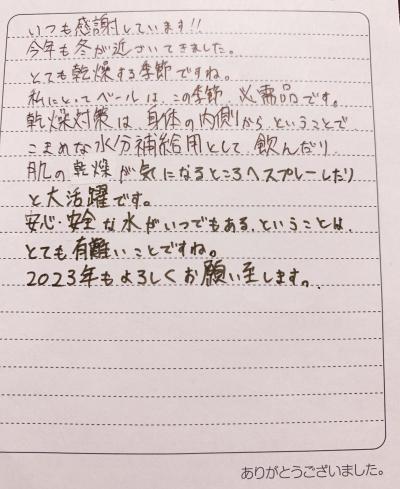 いつも感謝しています!!
今年も冬が近づいてきました。
とても乾燥する季節ですね。
私にとってベールは、この季節、必需品です。
乾燥対策は身体の内側から、ということで
こまめな水分補給用として飲んだり
肌の乾燥が気になるところへスプレーしたり
と大活躍です。
安心・安全な水がいつでもある、ということは、
とても有難いことですね。
2023年もよろしくお願い致します。
ありがとうございました。